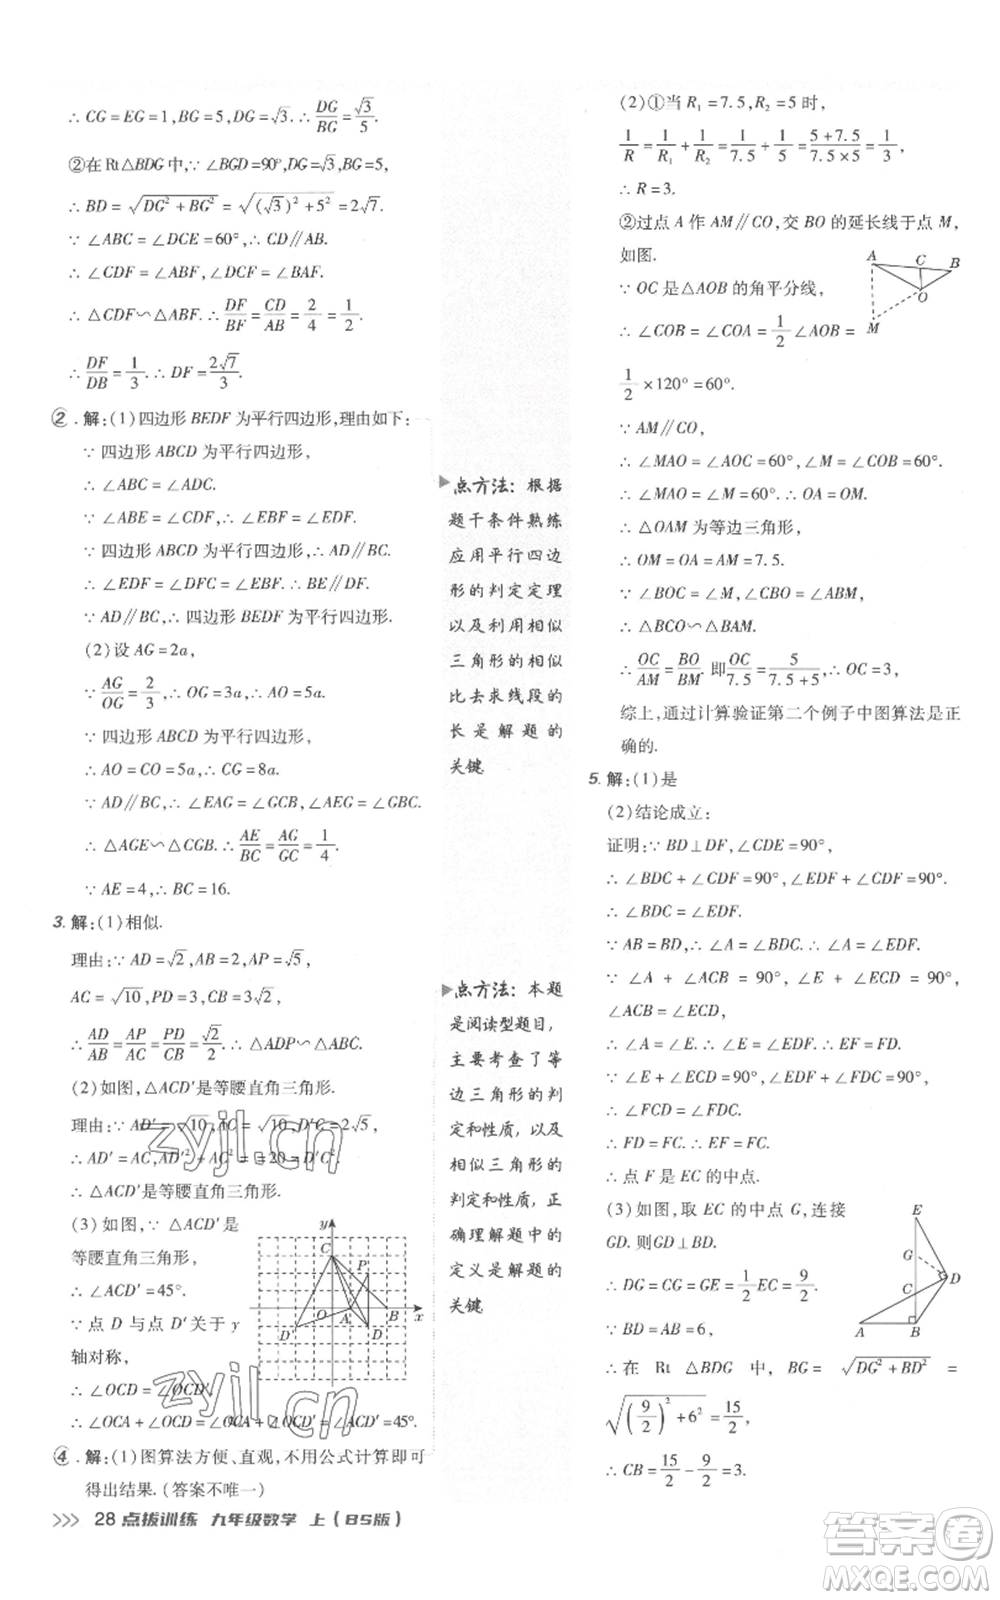 ∴ CG=EG=1,BG=5,DG=√3.∴ DG/BG=√3/5.
②在 Rt△BDG 中,∵ ∠BGD=90°,DG=√3,BG=5,
∴ BD=√(DG²+BG²)=√((√3)²+5²)=2√7.
∵ ∠ABC=∠DCE=60°,∴ CD∥AB.
∴ ∠CDF=∠ABF,∠DCF=∠BAF.
∴ △CDF∽△ABF.∴ DF/BF=CD/AB=2/4=1/2.
∴ DF/DB=1/3.∴ DF=2√7/3.
②. 解:(1)四边形 BEDF 为平行四边形,理由如下:
∵ 四边形 ABCD 为平行四边形,
∴ ∠ABC=∠ADC.
∵ ∠ABE=∠CDF,∴ ∠EBF=∠EDF.
∵ 四边形 ABCD 为平行四边形,∴ AD∥BC.
∴ ∠EDF=∠DFC=∠EBF.∴ BE∥DF.
∵ AD∥BC,∴ 四边形 BEDF 为平行四边形.
(2)设 AG=2a,
∵ AG/OG=2/3,∴ OG=3a,∴ AO=5a.
∵ 四边形 ABCD 为平行四边形,
∴ AO=CO=5a,∴ CG=8a.
∵ AD∥BC,∴ ∠EAG=∠GCB,∠AEG=∠GBC.
∴ △AGE∽△CGB.∴ AE/BC=AG/GC=1/4.
∵ AE=4,∴ BC=16.
3. 解:(1)相似.
理由:∵ AD=√2,AB=2,AP=√5,
AC=√10,PD=3,CB=3√2,
∴ AD/AB=AP/AC=PD/CB=√2/2.∴ △ADP∽△ABC.
(2)如图,△ACD′是等腰直角三角形.
理由:∵ AD′=√10,AC=√10,D′C=2√5,
∴ AD′=AC,AD′²+AC²=20=D′C².
∴ △ACD′是等腰直角三角形.
(3)如图,∵ △ACD′是
等腰直角三角形,
∴ ∠ACD′=45°.
∵ 点 D 与点 D′关于 y
轴对称,
∴ ∠OCD=∠OCD′.
∴ ∠OCA+∠OCD=∠OCA+∠OCD′=∠ACD′=45°.
y
C
P
O
A
B
x
D′
D
④. 解:(1)图算法方便、直观,不用公式计算即可
得出结果.(答案不唯一)
点方法:根据
题干条件熟练
应用平行四边
形的判定定理
以及利用相似
三角形的相似
比去求线段的
长是解题的
关键
点方法:本题
是阅读型题目,
主要考查了等
边三角形的判
定和性质,以及
相似三角形的
判定和性质,正
确理解题中的
定义是解题的
关键
(2)①当 R₁=7.5,R₂=5 时,
1/R=1/R₁+1/R₂=1/7.5+1/5=(5+7.5)/(7.5×5)=1/3,
∴ R=3.
②过点 A 作 AM∥CO,交 BO 的延长线于点 M,
如图.
∵ OC 是△AOB 的角平分线,
∴ ∠COB=∠COA=1/2∠AOB=
1/2×120°=60°.
A
C
B
O
M
∵ AM∥CO,
∴ ∠MAO=∠AOC=60°,∠M=∠COB=60°.
∴ ∠MAO=∠M=60°.∴ OA=OM.
∴ △OAM 为等边三角形,
∴ OM=OA=AM=7.5.
∵ ∠BCO=∠M,∠CBO=∠MBA,
∴ △BCO∽△BAM.
∴ OC/AM=BO/BM.即OC/7.5=5/(7.5+5).∴ OC=3,
综上,通过计算验证第二个例子中图算法是正
确的.
5. 解:(1)是
(2)结论成立:
证明:∵ BD⊥DF,∠CDE=90°,
∴ ∠BDC+∠CDF=90°,∠EDF+∠CDF=90°.
∴ ∠BDC=∠EDF.
∵ AB=BD,∴ ∠A=∠BDC.∴ ∠A=∠EDF.
∵ ∠A+∠ACB=90°,∠E+∠ECD=90°,
∠ACB=∠ECD.
∴ ∠A=∠E.∴ ∠E=∠EDF.∴ EF=FD.
∵ ∠E+∠ECD=90°,∠EDF+∠FDC=90°,
∴ ∠FCD=∠FDC.
∴ FD=FC.∴ EF=FC.
∴ 点 F 是 EC 的中点.
(3)如图,取 EC 的中点 G,连接
GD.则GD⊥BD.
∴ DG=CG=GE=1/2EC=9/2.
∵ BD=AB=6,
∴ 在 Rt △BDG 中, BG=√(DG²+BD²)=
√((9/2)²+6²)=15/2,
∴ CB=15/2-9/2=3.
E
G
D
C
A
B
28 点拨训练 九年级数学 上(BS版)
zyjl.cn
zyjl.cn
答案圈
MXQE.COM